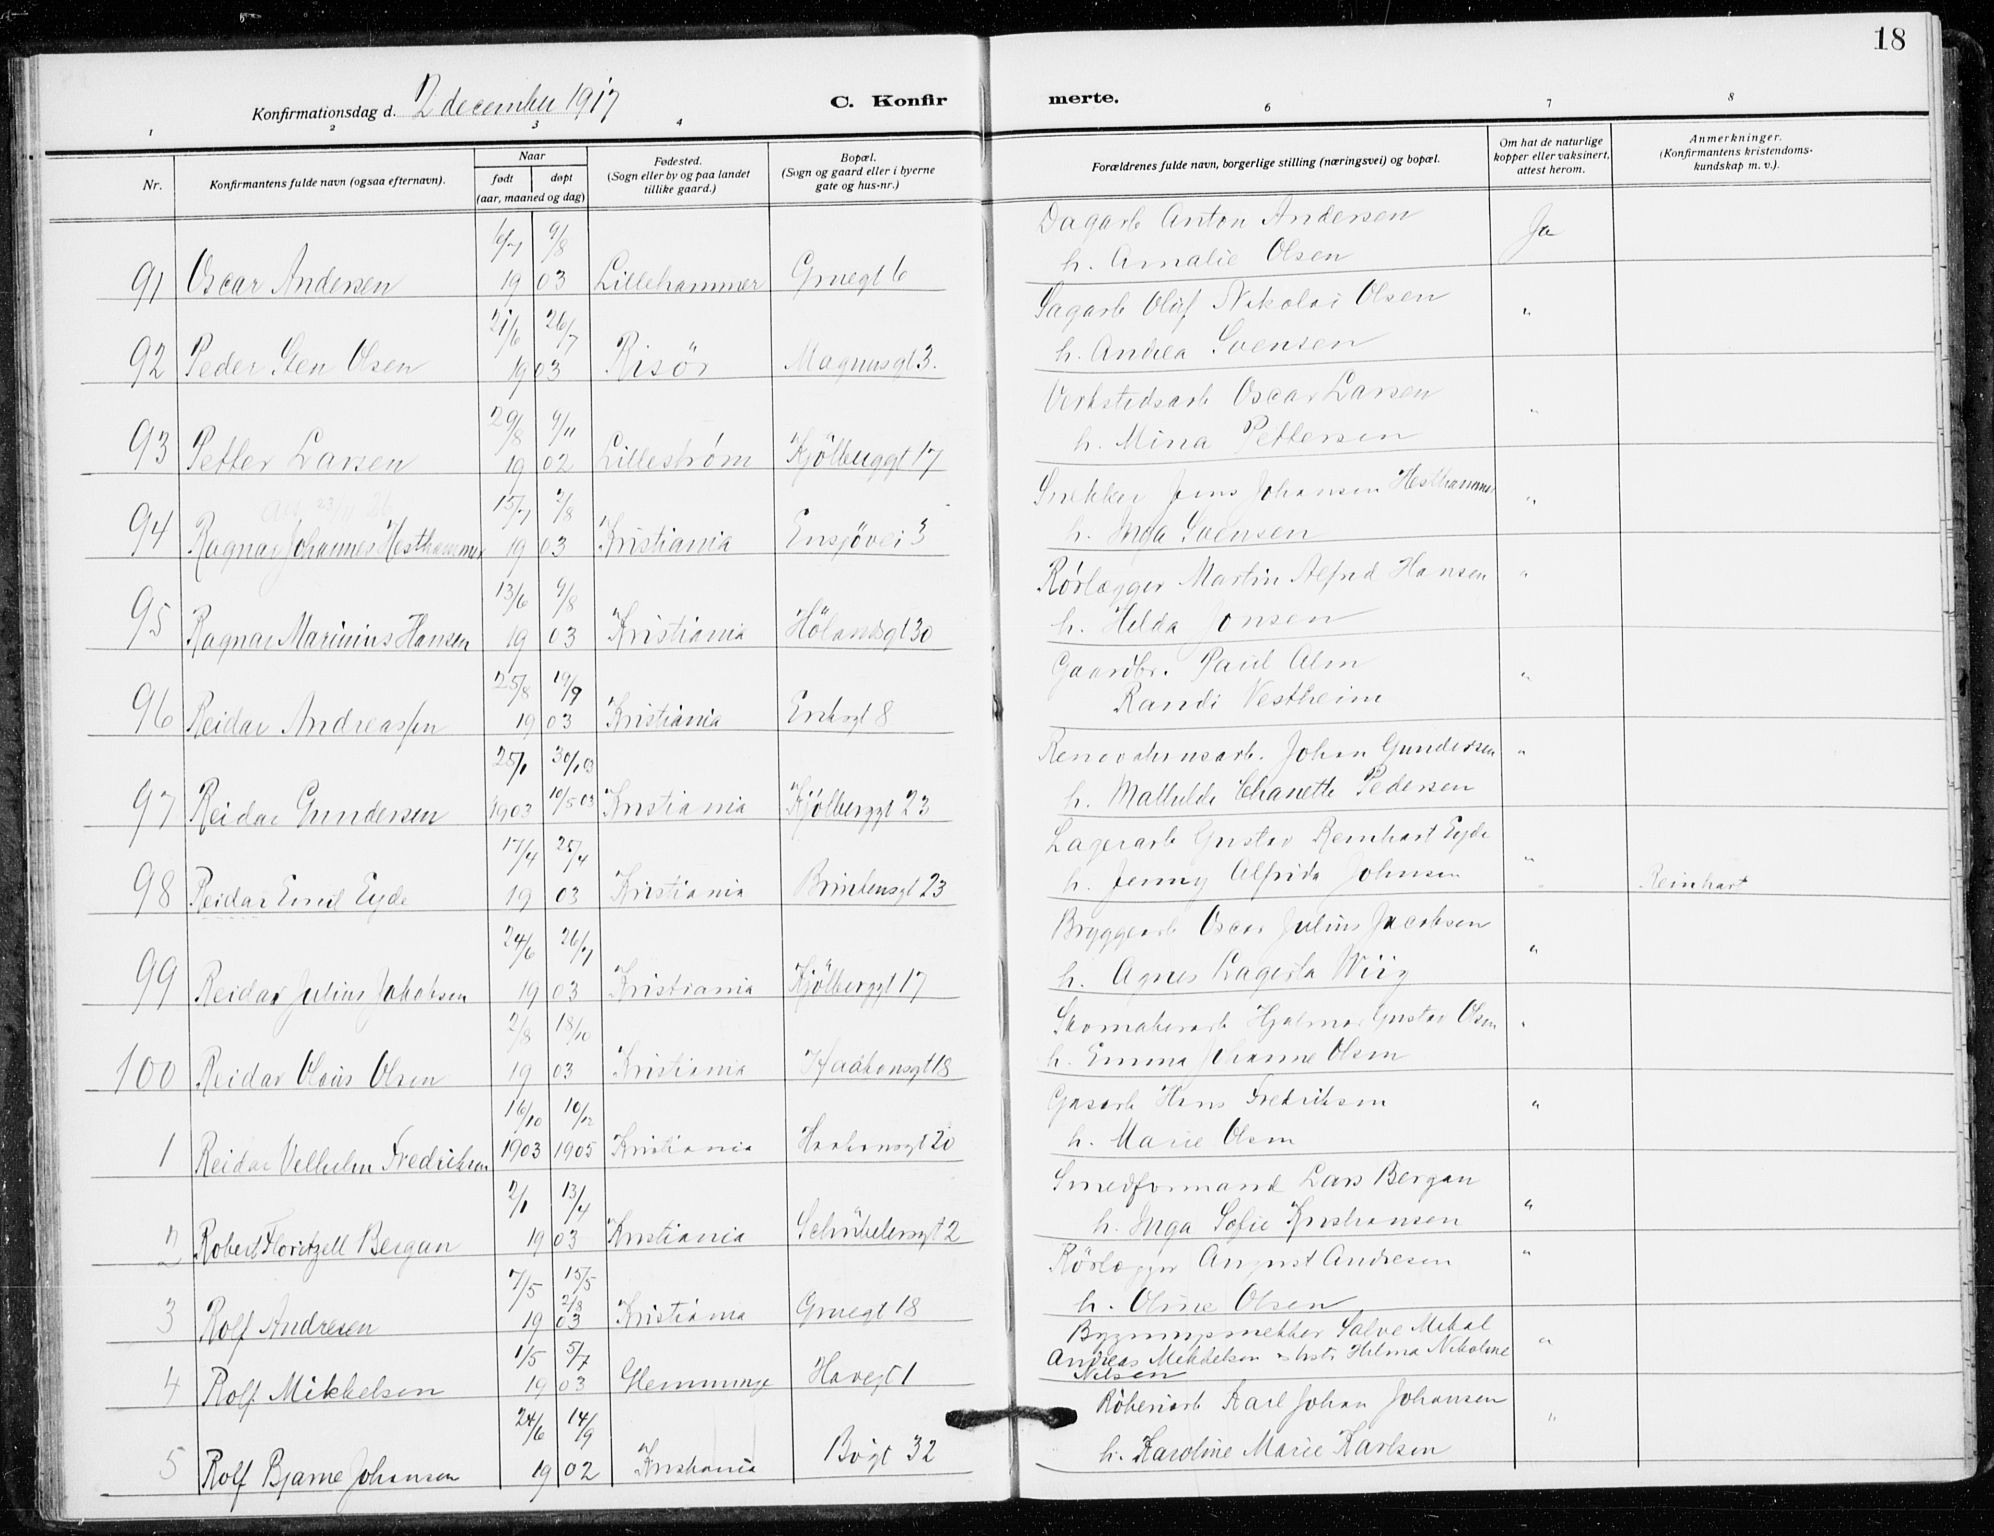 18
Konfirmationsdag d. 2 december 1917
C. Konfir merte.
1 2 3 4 6 7 8
Nr.
Konfirmantens fulde navn (ogsaa efternavn).
Naar
født døpt
(aar, maaned og dag)
Fødested.
(Sogn eller by og paa landet
tillike gaard.)
Bopæl.
(Sogn og gaard eller i byerne
gate og hus-nr.)
Forældrenes fulde navn, borgerlige stilling (næringsvei) og bopæl.
Om hat de naturlige
kopper eller vaksinert,
attest herom.
Anmerkninger.
(Konfirmantens kristendoms-
kundskap m. v.).
6/7 9/8 Dagarb Anton Andersen Ja
91 Oscar Andersen 19 03 Lillehammer Gruegt 6 h. Amalie Olsen
21/6 26/7 Sagarb Olaf Nikolai Olsen "
92 Peder Sten Olsen 19 03 Risör Magnusgt 3. h. Andrea Svensen
29/8 9/11 Verkstedsarb Oscar Larsen "
93 Petter Larsen 19 02 Lillestrøm Kjölberggt 17 h. Mina Pettersen
23/11 26 15/7 2/8 Snekker Jens Johansen Hesthammer "
94 Ragnar Johannes Hesthammer 19 03 Kristiania Ensjövei 3 h. Inga Svensen
13/6 9/8 Rörlægger Martin Alfred Hansen "
95 Ragnar Marinius Hansen 19 03 Kristiania Hölandsgt 30 h. Hilda Jonsen
25/8 19/9 Gaardbr. Paul Alm "
96 Reidar Andreassen 19 03 Kristiania Eriksgt 8 Randi Vestheim
25/1 30/1 03 Renovationsarb. Johan Gundersen "
97 Reidar Gundersen 1903 10/5 03 Kristiania Kjölberggt 23 h. Mathilde Chanette Pedersen
17/4 25/4 Lagerarb Gustav Reinhart Eyde "
98 Reidar Emil Eyde 19 03 Kristiania Brinkensgt 23 h. Jenny Alfrida Johnsen Reinhart
24/6 26/7 Bryggearb Oscar Julius Jacobsen "
99 Reidar Julius Jakobsen 19 03 Kristiania Kjölberggt 17 h. Agnes Lagerta Wiig
2/8 18/10 Skomakerarb Hjalmar Gustav Olsen "
100 Reidar Olaus Olsen 19 03 Kristiania Haakonsgt 18 h. Emma Johanne Olsen
16/10 10/12 Gasarb Hans Fredriksen "
1 Reidar Vilhelm Fredriksen 1903 1905 Kristiania Haakonsgt 20 h. Marie Olsen
2/1 13/4 Smedformand Lars Bergan "
2 Robert Bergan 19 03 Kristiania Schübelersgt 2 h. Inga Sofie Kristiansen
7/5 15/5 Rörlægger August Andresen "
2/8
3 Rolf Andresen 19 03 Kristiania Gruegt 18 h. Oline Olsen
1/5 5/7 Bygningssnekker Salve Mikal
Andreas Mikkelsen hst. Hilma Nikoline "
4 Rolf Mikkelsen 19 03 Glemminge Havegt 1 Nilsen
24/6 14/9 Karl Johan Johansen "
5 Rolf Bjarne Johansen 19 02 Kristiania Bögt 32 h. Karoline Marie Karlsen